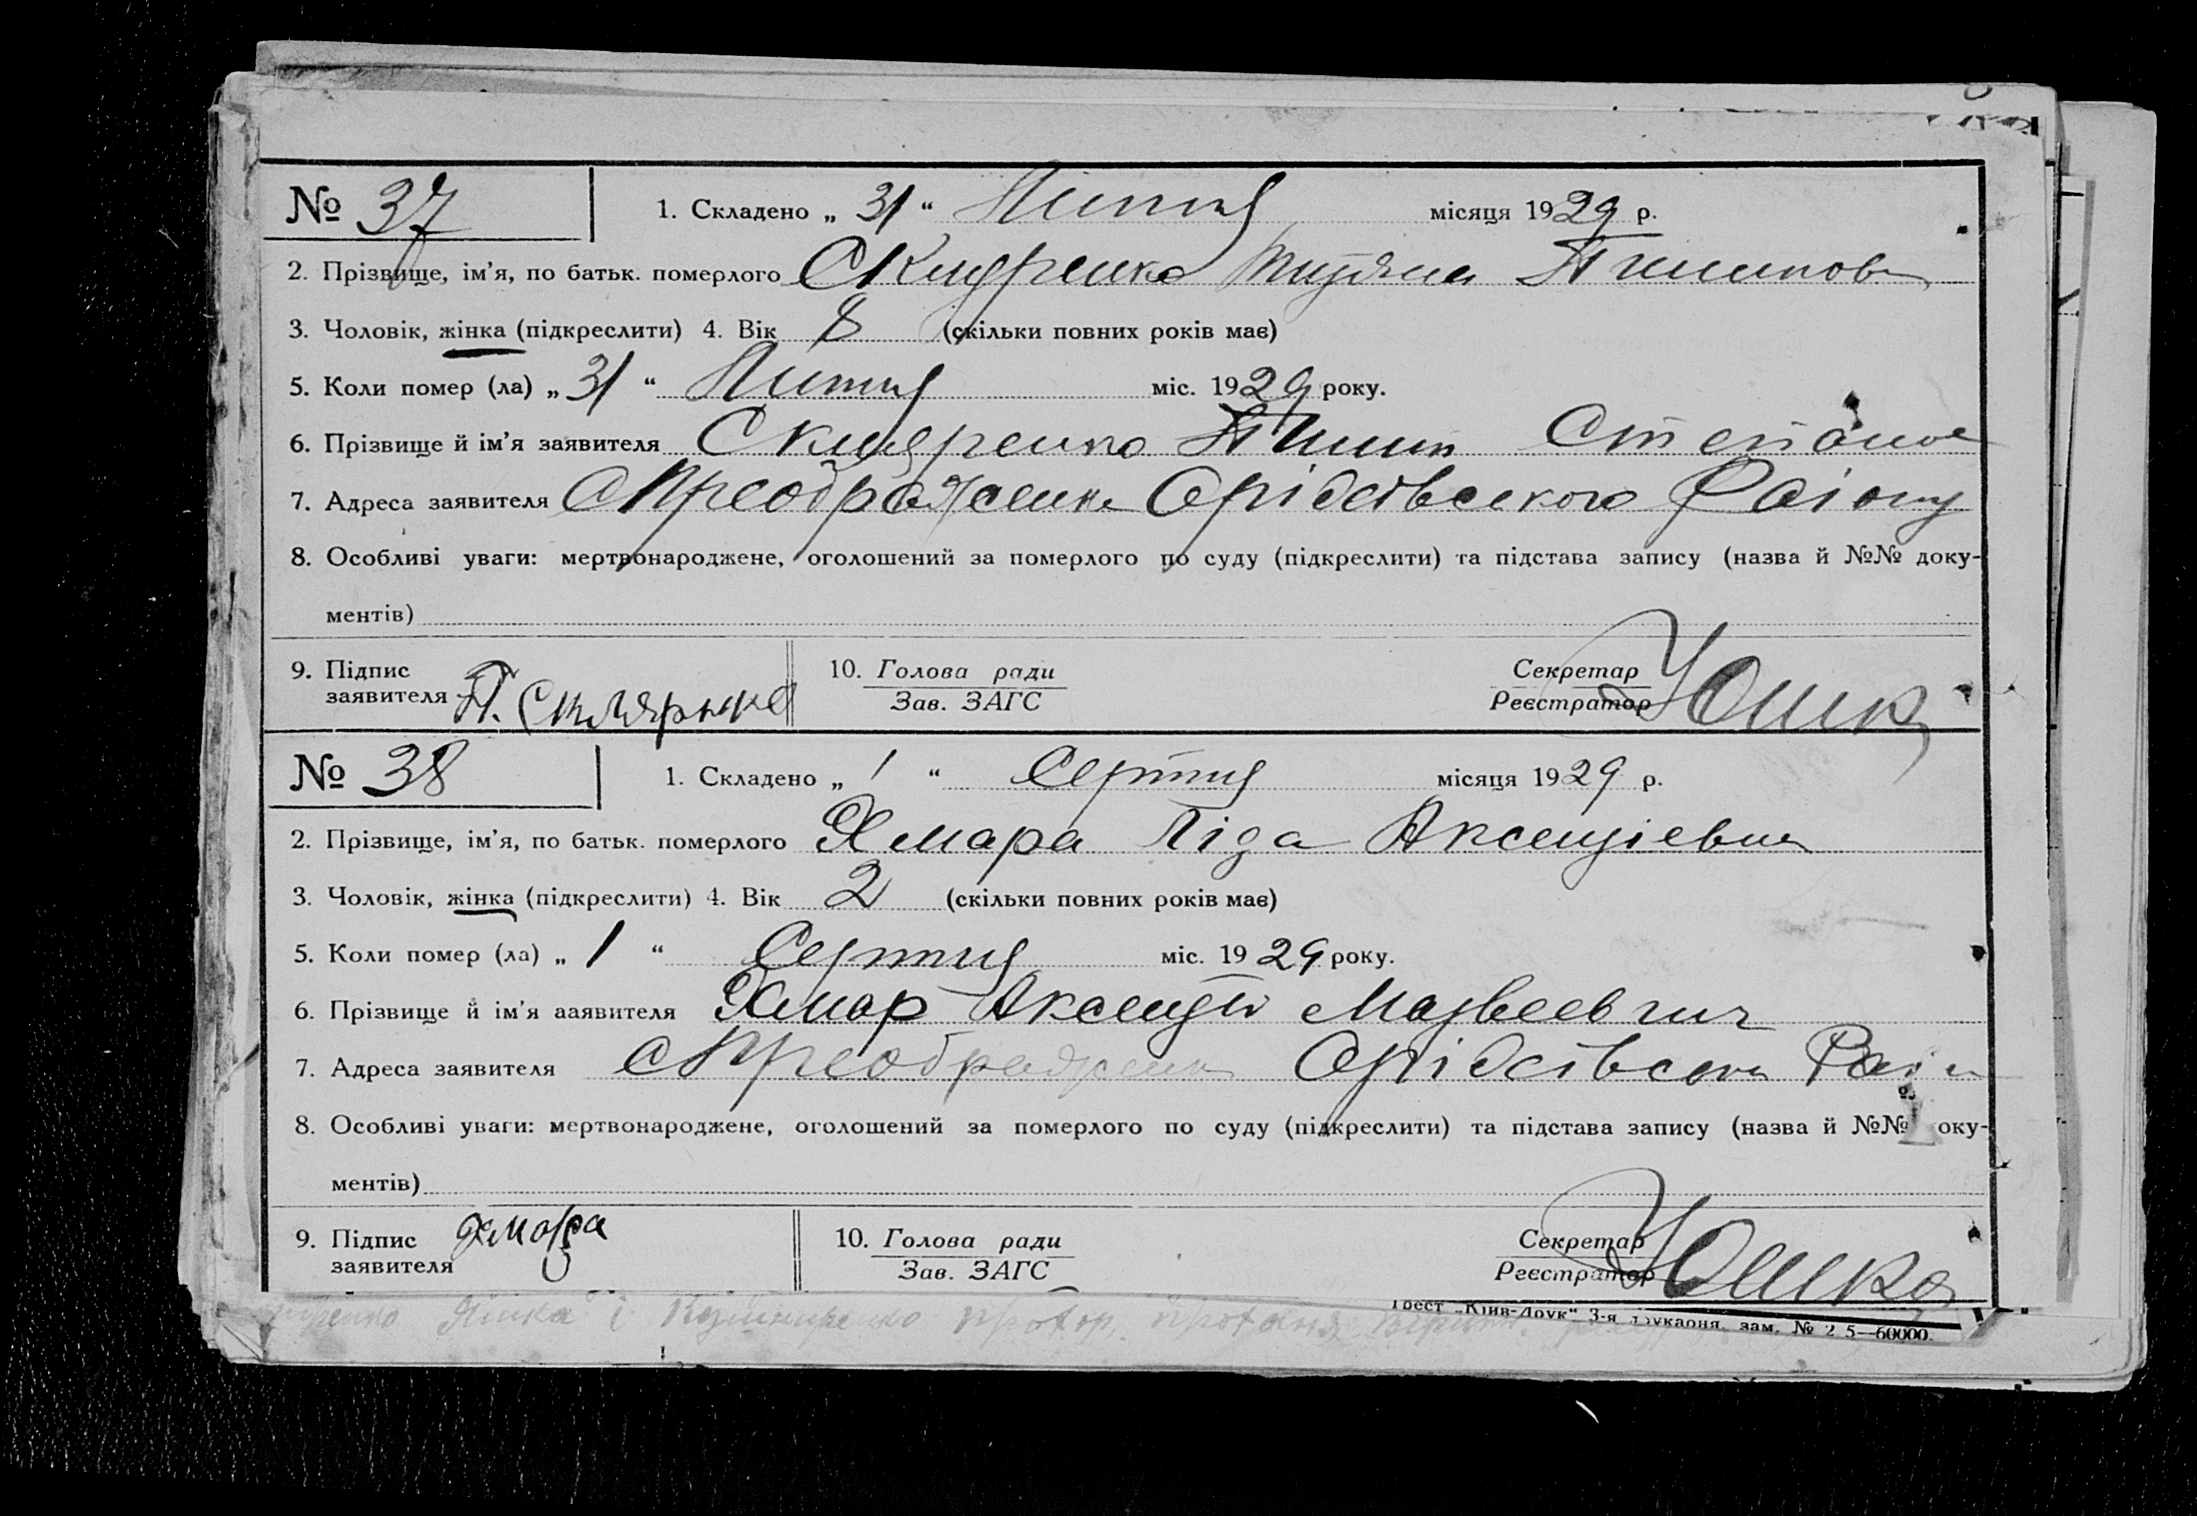 № 37 1. Складено „ 31 “ Липня місяця 1929 р.
2. Прізвище, ім'я, по батьк. померлого Склyренко Пилипов
3. Чоловік, жінка (підкреслити) 4. Вік 8 (скільки повних років має)
5. Коли помер (ла) „ 31 “ Липня міс. 1929 року.
6. Прізвище й ім'я заявителя Скляренко Пилип Степанов
7. Адреса заявителя с Преображенка Оріхівського Району
8. Особливі уваги: мертвонароджене, оголошений за померлого по суду (підкреслити) та підстава запису (назва й №№ доку-
ментів)
9. Підпис 10. Голова ради Секретар
заявителя П. Склярнко Зав. ЗАГС Реєстратор Юшка
№ 38 1. Складено „ 1 “ Серпня місяця 1929 р.
2. Прізвище, ім'я, по батьк. померлого Хмара Ліда Аксентіевна
3. Чоловік, жінка (підкреслити) 4. Вік 2 (скільки повних років має)
5. Коли помер (ла) „ 1 “ Серпня міс. 1929 року.
6. Прізвище й ім'я заявителя Хмар Аксентій Матвеевич
7. Адреса заявителя с Преображенк Оріхівськи
8. Особливі уваги: мертвонароджене, оголошений за померлого по суду (підкреслити) та підстава запису (назва й №№ оку-
ментів)
9. Підпис 10. Голова ради Секретар
заявителя Хмара Зав. ЗАГС Реєстратор Юшка
Трест „Київ-Друк“ 3-я друкарня, зам. № 2 5—60000.